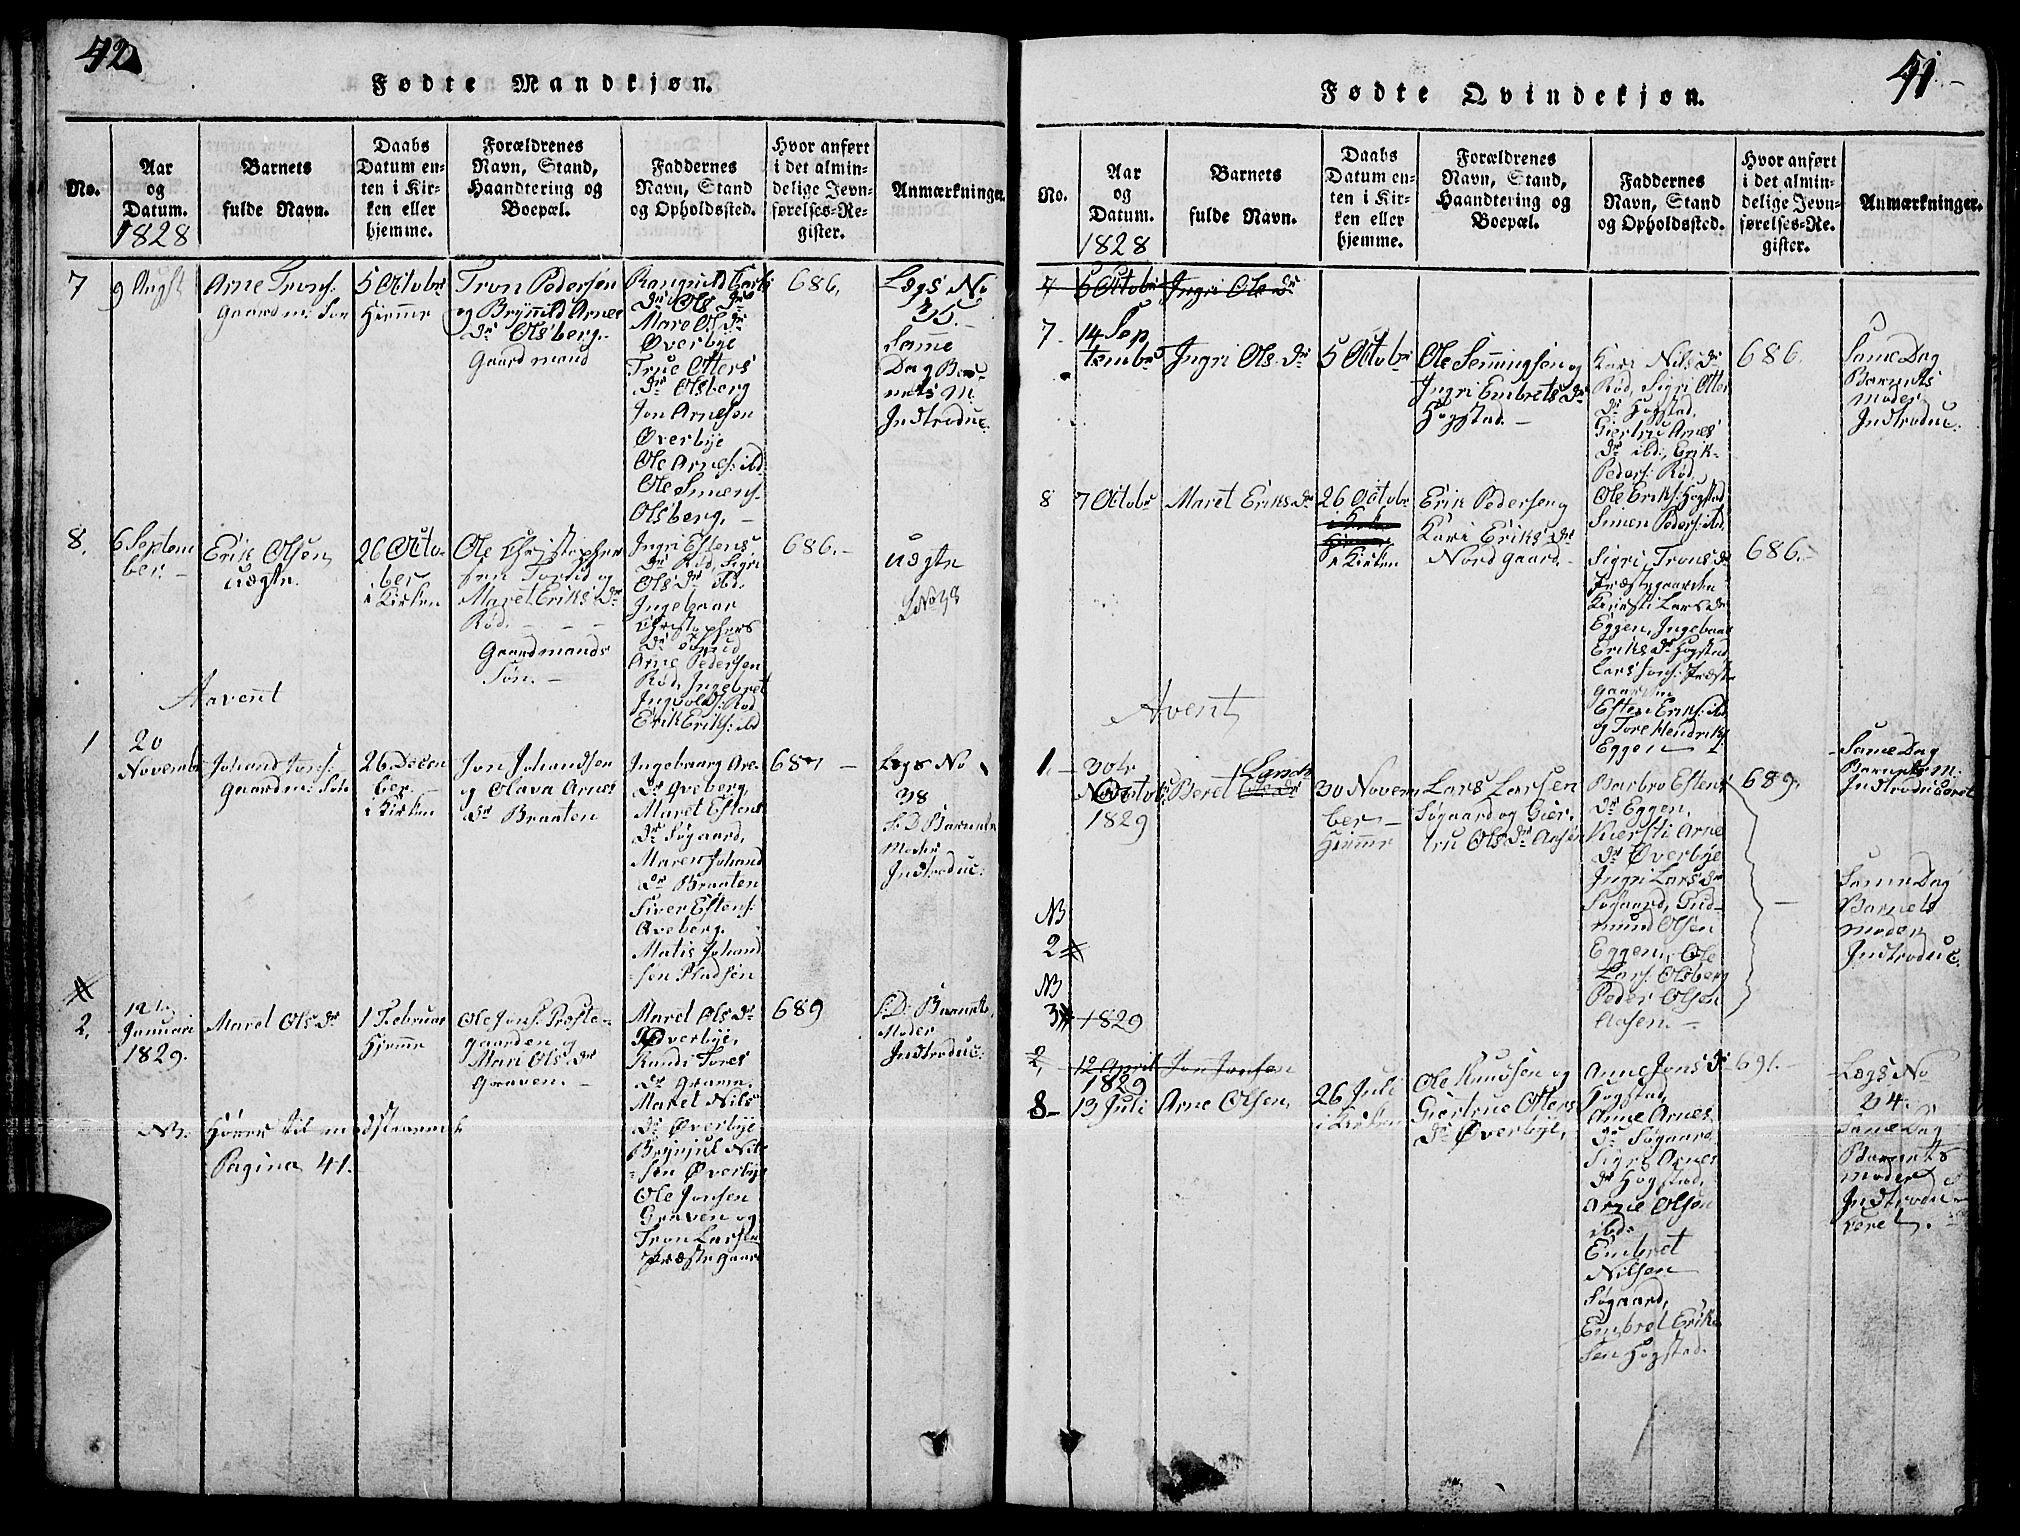 42
Fødte Mandkjøn.
No.
Aar
og
Datum.
1828
Barnets
fulde Navn.
Daabs
Datum en-
ten i Kir-
ken eller
hjemme.
Forældrenes
Navn, Stand,
Haandtering og
Boepæl.
Faddernes
Navn, Stand
og Opholdssted.
Hvor anført
i det almin-
delige Jevn-
førelses-Re-
gister.
Anmærkninger.
7
9 Augst
Arne Trons:
Gaardm: Søn
5 Octobr
Hiemme
Tron Pedersen
og Brynild Arnes
Dr Olsberg.
Gaardmand
Dr Ols Dr
Mare Ols Dr
Øverbye
True Otters
Dr Olsberg
Jon Arnesen
Øverbye
Ole Arnes: ibd
Ole Simens:
Olsberg.
686.
Lægs No
35.
Samme
Dag Bar-
nets M:
Indtroduc:
8.
6 Septem
ber.
Erik Olsen
uægte.
26 Octo-
ber
i Kirken
Ole Christopher
sen Torud og
Maret Eriks Dr
Rød.
Gaardmands
Søn.
Ingri Estens
Dr Rød, Sigri
Ols Dr ibd.
Ingebaar
Christophers
Dr Torud
Arne Pedersen
Rød, Ingebret
Ingvolds: Rød
Erik Eriks: ibd
686.
uægte
L No 38
Aavent
1
20
Novembr
Johand Jons:
Gaardm: Søn
26 Decem
ber
i Kirken
Jon Johandsen
og Olava Arnes
Dr Braaten
Ingebaarg Are-
Dr Aveberg
Maret Estens
Dr Søgaard,
Maren Johand
Dr Braaten
Siver Estens:
Aveberg.
Matis Johand
sen Pladsen
687
Lægs No
38
S: D: Barnets
Moder
Indtroduc:
2.
Januari
1829.
Maret Ols Dr
1 Februar
Hjemme
Ole Jons: Præste-
gaarden og
Mari Ols Dr
Graven.
Maret Ols Dr
Øverbye,
Randi Tores
Dr Graven.
Maret Nils
Dr Øverbye
Brynjul Nil-
sen Øverbye
Ole Jonsen
Graven og
Tron Larsen
Præstegaard
689
S: D: Barnets
Moder
Indtroduc:
NB.
Pagina 41.
41
Fødte Qvindekjøn.
No.
Aar
og
Datum.
1828
Barnets
fulde Navn.
Daabs
Datum en-
ten i Kir-
ken eller
hjemme.
Forældrenes
Navn, Stand,
Haandtering og
Boepæl.
Faddernes
Navn, Stand
og Opholdssted.
Hvor anført
i det almin-
delige Jevn-
førelses-Re-
gister.
Anmærkninger.
7
5 Octobr
Ingri Ols Dr
7
14 Sep
tembr
Ingri Ols Dr
5 Octobr
Ole Semingsen og
Ingri Embrets Dr
Hogstad.
Kari Nils Dr
Rød, Sigri Otter
Dr Hogstad,
Giertru Arnes
Dr ibd:, Erik
Peders: Rød
Ole Eriks: Hogstad
Simen Peders: ibd
686.
Same Dag
Barnets
Moder
Indtroduc:
8
7 Octobr
Maret Eriks Dr
26 Octobr
i Kirken
Hiemme
i Kirken
Erik Pedersen og
Kari Eriks Dr
Nordgaard.
Sigri Trons Dr
Præstegaarden
Kiersti Lars Dr
Eggen, Ingebaar
Eriks Dr Hogstad
Lars Jons: Præste
gaarden
Esten Eriks: ibd
og Tore Hendriks:
Eggen
686.
Avent
1.
30te
Octobr
1829
Beret
Lars Dr
30 Novem
ber
Hiemme
Lars Larsen
Søgaard og Gier-
tru Ols Dr Aasen
Barbro Estens
Dr Eggen,
Kiersti Arne
Dr Øverbye
Ingri Lars Dr
Søgaard, Gud-
mund Olsen
Eggen, Ole
Lars: Olsberg
Peder Olsen
Aasen.
689.
Same Dag
Barnets M:
Indtroduceret
NB
2
NB
3
1829
Same Dag
Barnets
Moder
Indtroduc.
2.
12 April
Jon Jonsen
8
1829
13 Juli
Arne Olsen
26 Juli
i Kirken
Ole Knudsen og
Giertrue Otters
Dr Øverbye,
Anne Jons Dr
Hogstad
Anne Arnes
Dr Søgaard
Sigri Arnes
Dr Hogstad,
Arne Olsen
ibd:
Embret
Nilsen
Søgaard,
Embret Erik
sen Hogstad.
691.
Lægs No
24.
Same Dag
Barnets
Moder
Indtrodu
ceret.